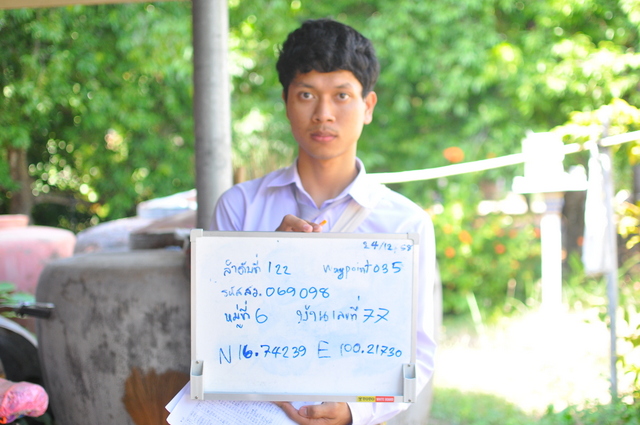 24/12/58
ลำดับที่ 122 waypoint 035
รหัสสว. 069098
หมู่ที่ 6 บ้านเลขที่ 77
N 16.74239 E 100.21730